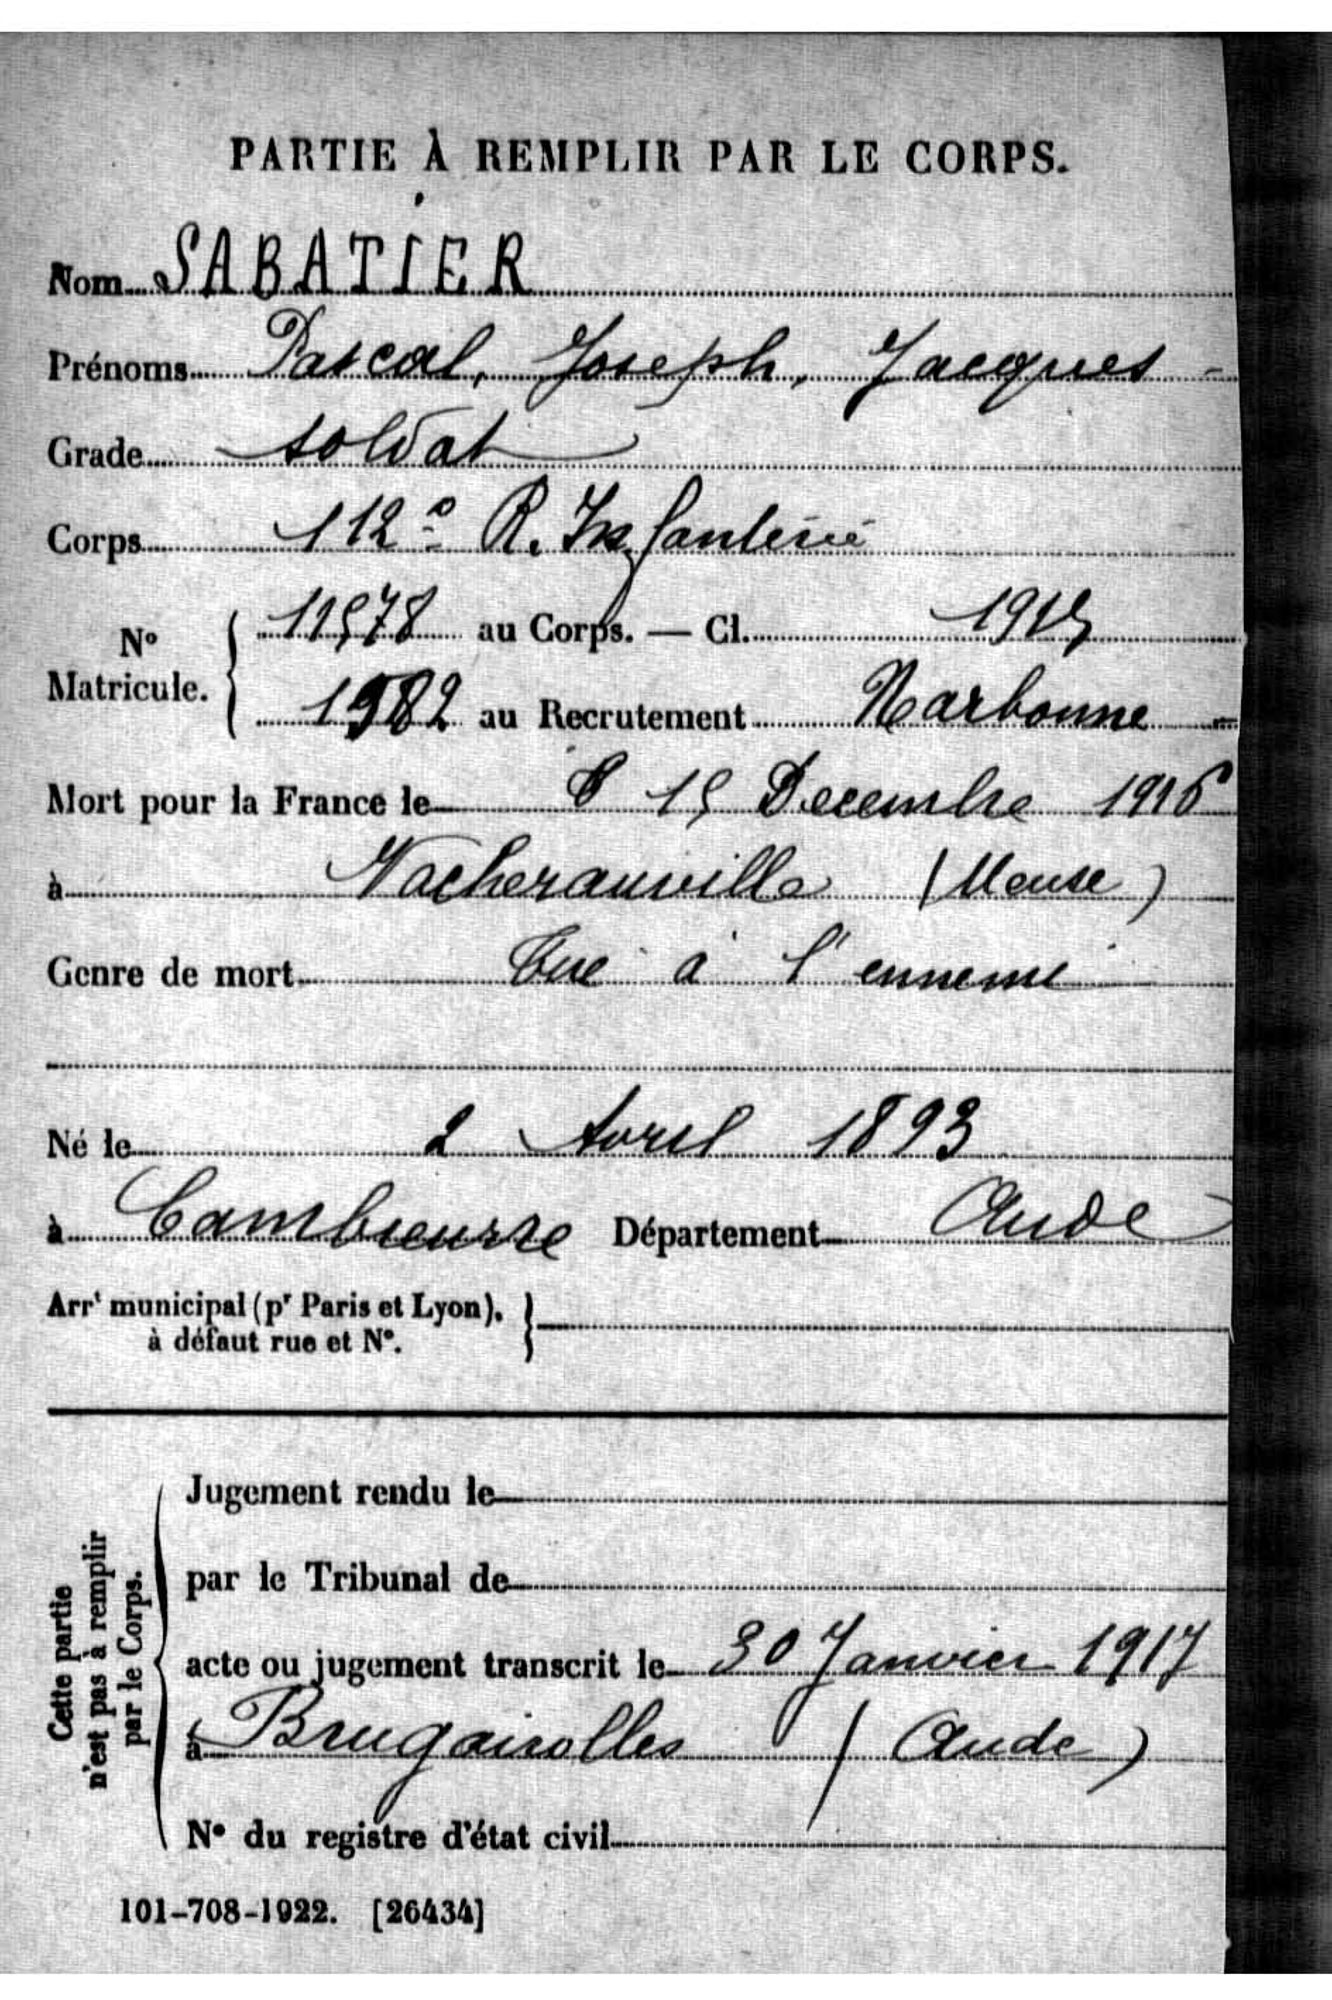 PARTIE À REMPLIR PAR LE CORPS.
Nom SABATIER
Prénoms Pascal, Joseph, Jacques
Grade soldat
Corps 112e R. Infanterie
N° Matricule. { 11578 au Corps. — Cl. 1915
1982 au Recrutement Narbonne
Mort pour la France le 15 Decembre 1916
à Vacherauville (Meuse)
Genre de mort Tué à l'ennemi
Né le 2 Avril 1893
à Cambieure Département Aude
Arrt municipal (pr Paris et Lyon), à défaut rue et N°. }
Cette partie n'est pas à remplir par le Corps.
Jugement rendu le
par le Tribunal de
acte ou jugement transcrit le 30 Janvier 1917
à Brugairolles (Aude)
N° du registre d'état civil
101-708-1922. [26434]